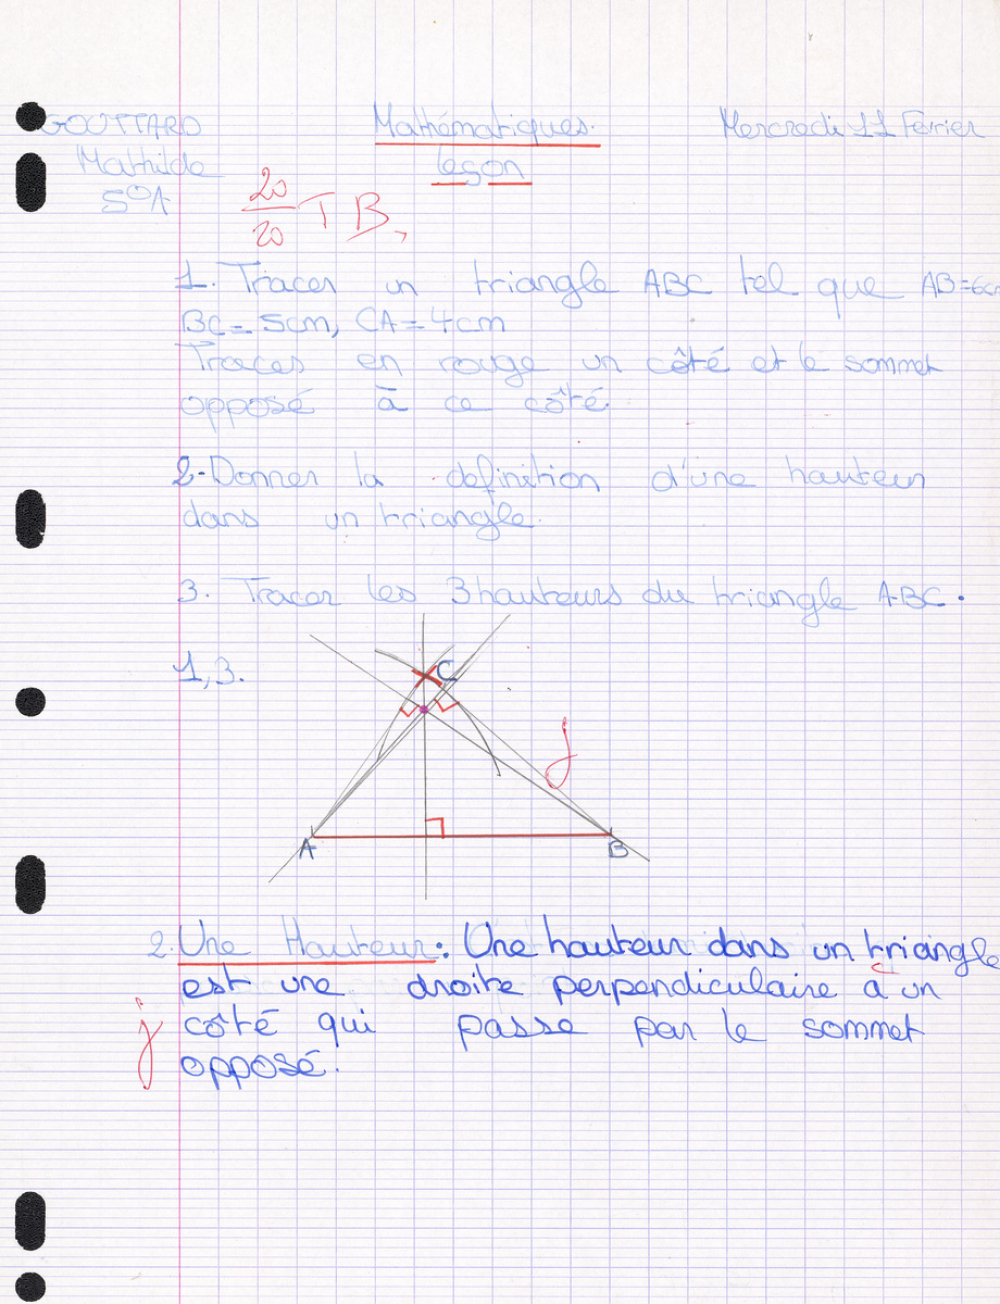 GOUTTARD Mathématiques. Mercredi 11 Février
Mathilde leçon
5°A
20/20 TB,
1. Tracer un triangle ABC tel que AB=6cm
BC=5cm, CA=4cm
Traces en rouge un côté et le sommet
opposé à ce côté.
2-Donner la definition d'une hauteur
dans un triangle.
3. Tracer les 3 hauteurs du triangle ABC.
1,3.
C
A
B
2. Une Hauteur: Une hauteur dans un triangle
est une droite perpendiculaire à un
côté qui passe par le sommet
opposé.